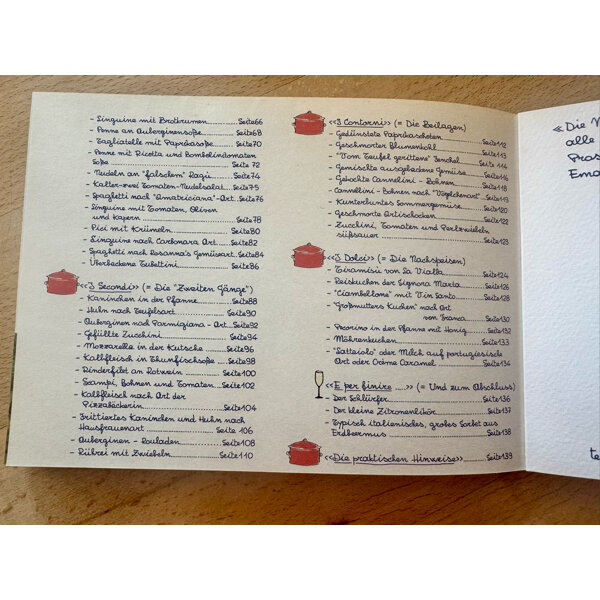 - Linguine mit Brotkrumen..........Seite66
- Penne an Auberginensoße..........Seite68
- Tagliatelle mit Paprikasoße..........Seite70
- Penne mit Ricotta und Bombelindomaten
soße..........Seite 72
- Nudeln an "falschem" Ragù..........Seite74
- Kalter-zwei Tomaten-Nudelsalat...Seite75
- Spaghetti nach "Amatriciana"-Art..Seite76
- Linguine mit Tomaten, Oliven
und Kapern..........Seite78
- Pici mit Krümeln..........Seite80
- Linguine nach Carbonara Art.....Seite82
- Spaghetti nach Rosanna's Gemüseart.Seite84
- Überbackene Tubettini..........Seite86
«I Secondi» (= Die "Zweiten Gänge")
- Kaninchen in der Pfanne..........Seite88
- Huhn nach Teufelsart..........Seite90
- Auberginen nach Parmigiana - Art..Seite92
- Gefüllte Zucchini..........Seite94
- Mozzarella in der Kutsche..........Seite96
- Kalbfleisch in Thunfischsoße.....Seite98
- Rinderfilet an Rotwein..........Seite100
- Scampi, Bohnen und Tomaten....Seite102
- Kalbfleisch nach Art der
Pizzabäckerin..........Seite104
- Frittiertes Kaninchen und Huhn nach
Hausfrauenart..........Seite 106
- Auberginen - Rouladen..........Seite108
- Rührei mit Zwiebeln..........Seite110
«I Contorni» (= Die Beilagen)
- Gedünstete Paprikaschoten..........Seite112
- Geschmorter Blumenkohl..........Seite113
- "Vom Teufel gerittene" Fenchel..........Seite114
- Gemischte ausgebackene Gemüse..........Seite116
- Gekochte Cannelini - Bohnen..........Seite118
- Cannelini - Bohnen nach "Vögelchenart"..Seite119
- Kunterbuntes Sommergemüse..........Seite120
- Geschmorte Artischocken..........Seite122
- Zucchini, Tomaten und Perlzwiebeln
süßsauer..........Seite123
«I Dolci» (= Die Nachspeisen)
- Tiramisù von La Vialla..........Seite124
- Reiskuchen der Signora Maria..........Seite126
- "Ciambellone" mit Vin Santo..........Seite128
- "Großmutters Kuchen" nach Art
von Franca..........Seite130
- Pecorino in der Pfanne mit Honig..........Seite132
- Möhrenkuchen..........Seite133
- "Latteiolo" oder Milch auf portugiesische
Art oder Crème Caramel..........Seite134
«E per finire ....» (= Und zum Abschluss)
- Der Schlürfer..........Seite136
- Der kleine Zitronenlikör..........Seite137
- Typisch italienisches, großes Sorbet aus
Erdbermus..........Seite138
«Die praktischen Hinweise»..........Seite139
«Die
alle
Pros
Ema
te